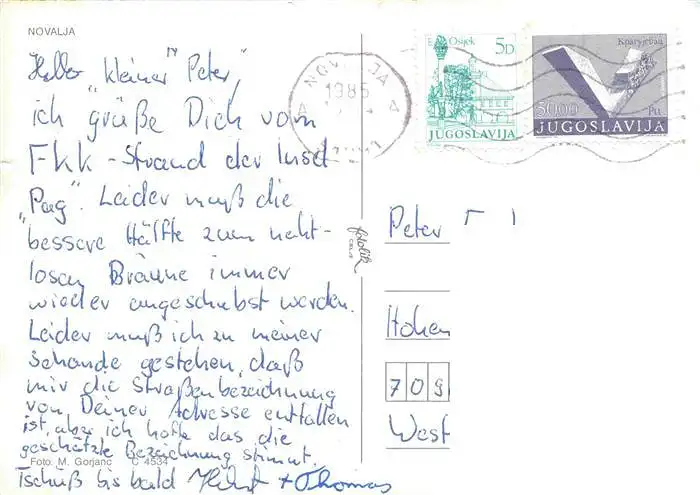 NOVALJA
Hallo "kleiner" Peter,
ich grüße Dich vom
FKK-Strand der Insel
"Pag". Leider muß die
bessere Hälfte zum naht-
losen Bräune immer
wieder angeschubst werden.
Leider muß ich zu meiner
Schande gestehen, daß
mir die Straßenbezeichnung
von Deiner Adresse entfallen
ist, aber ich hoffe das die
geschätzte Bezeichnung stimmt.
Foto: M. Gorjanc C 4534
Tschüß bis bald + Thomas
fotolik
CELJE
1985
Osijek 5D
JUGOSLAVIJA
Крагујевац
50.00
JUGOSLAVIJA
Peter
Hohen
709
West